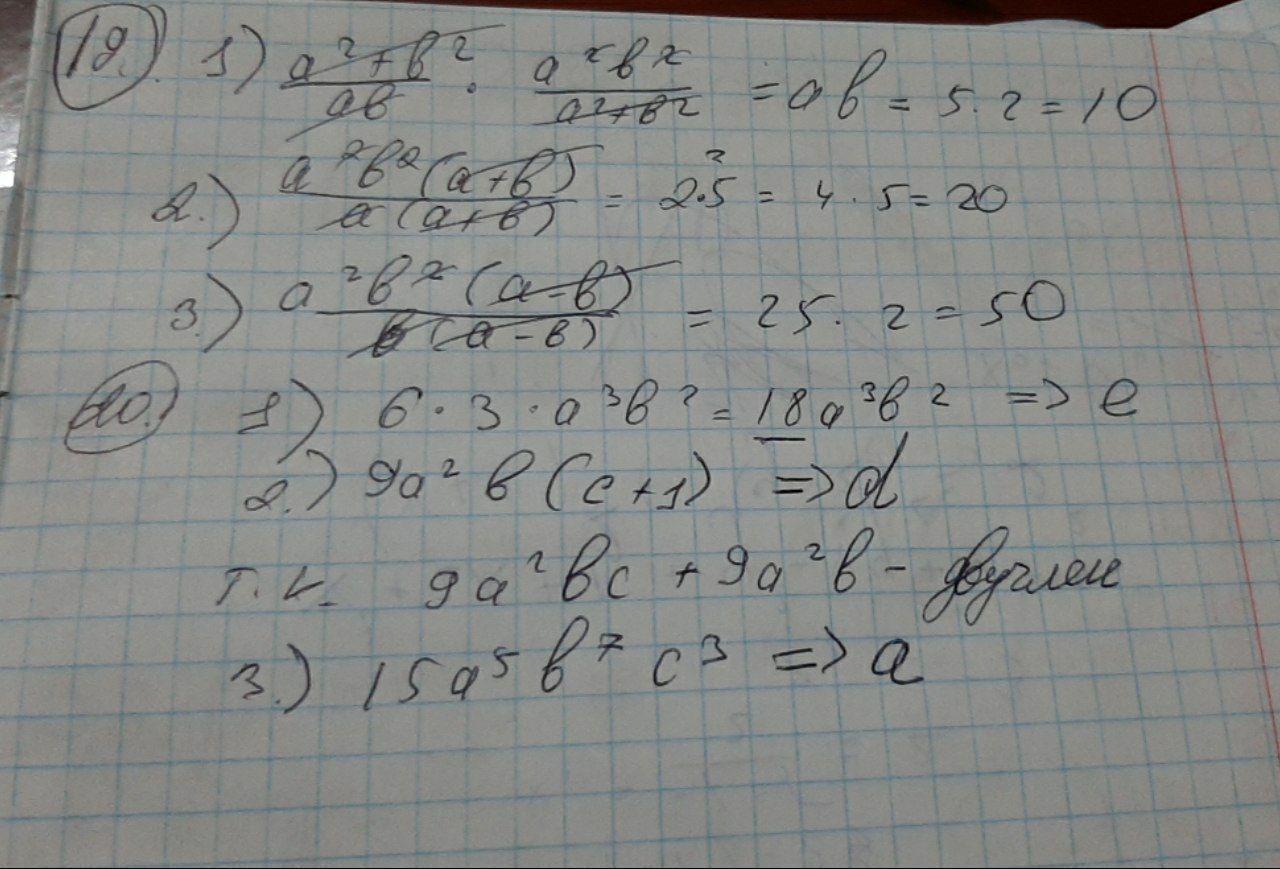 19. 1) a²+b²/ab · a²b²/a²+b² = ab = 5·2 = 10
2.) a²b²(a+b)/a(a+b) = 2²·5 = 4·5 = 20
3.) a²b²(a-b)/b(a-b) = 25·2 = 50
20. 1) 6·3·a³b² = 18a³b² => e
2.) 9a²b(c+1) => d
т.к. 9a²bc + 9a²b - двучлен
3.) 15a⁵b⁷c³ => a